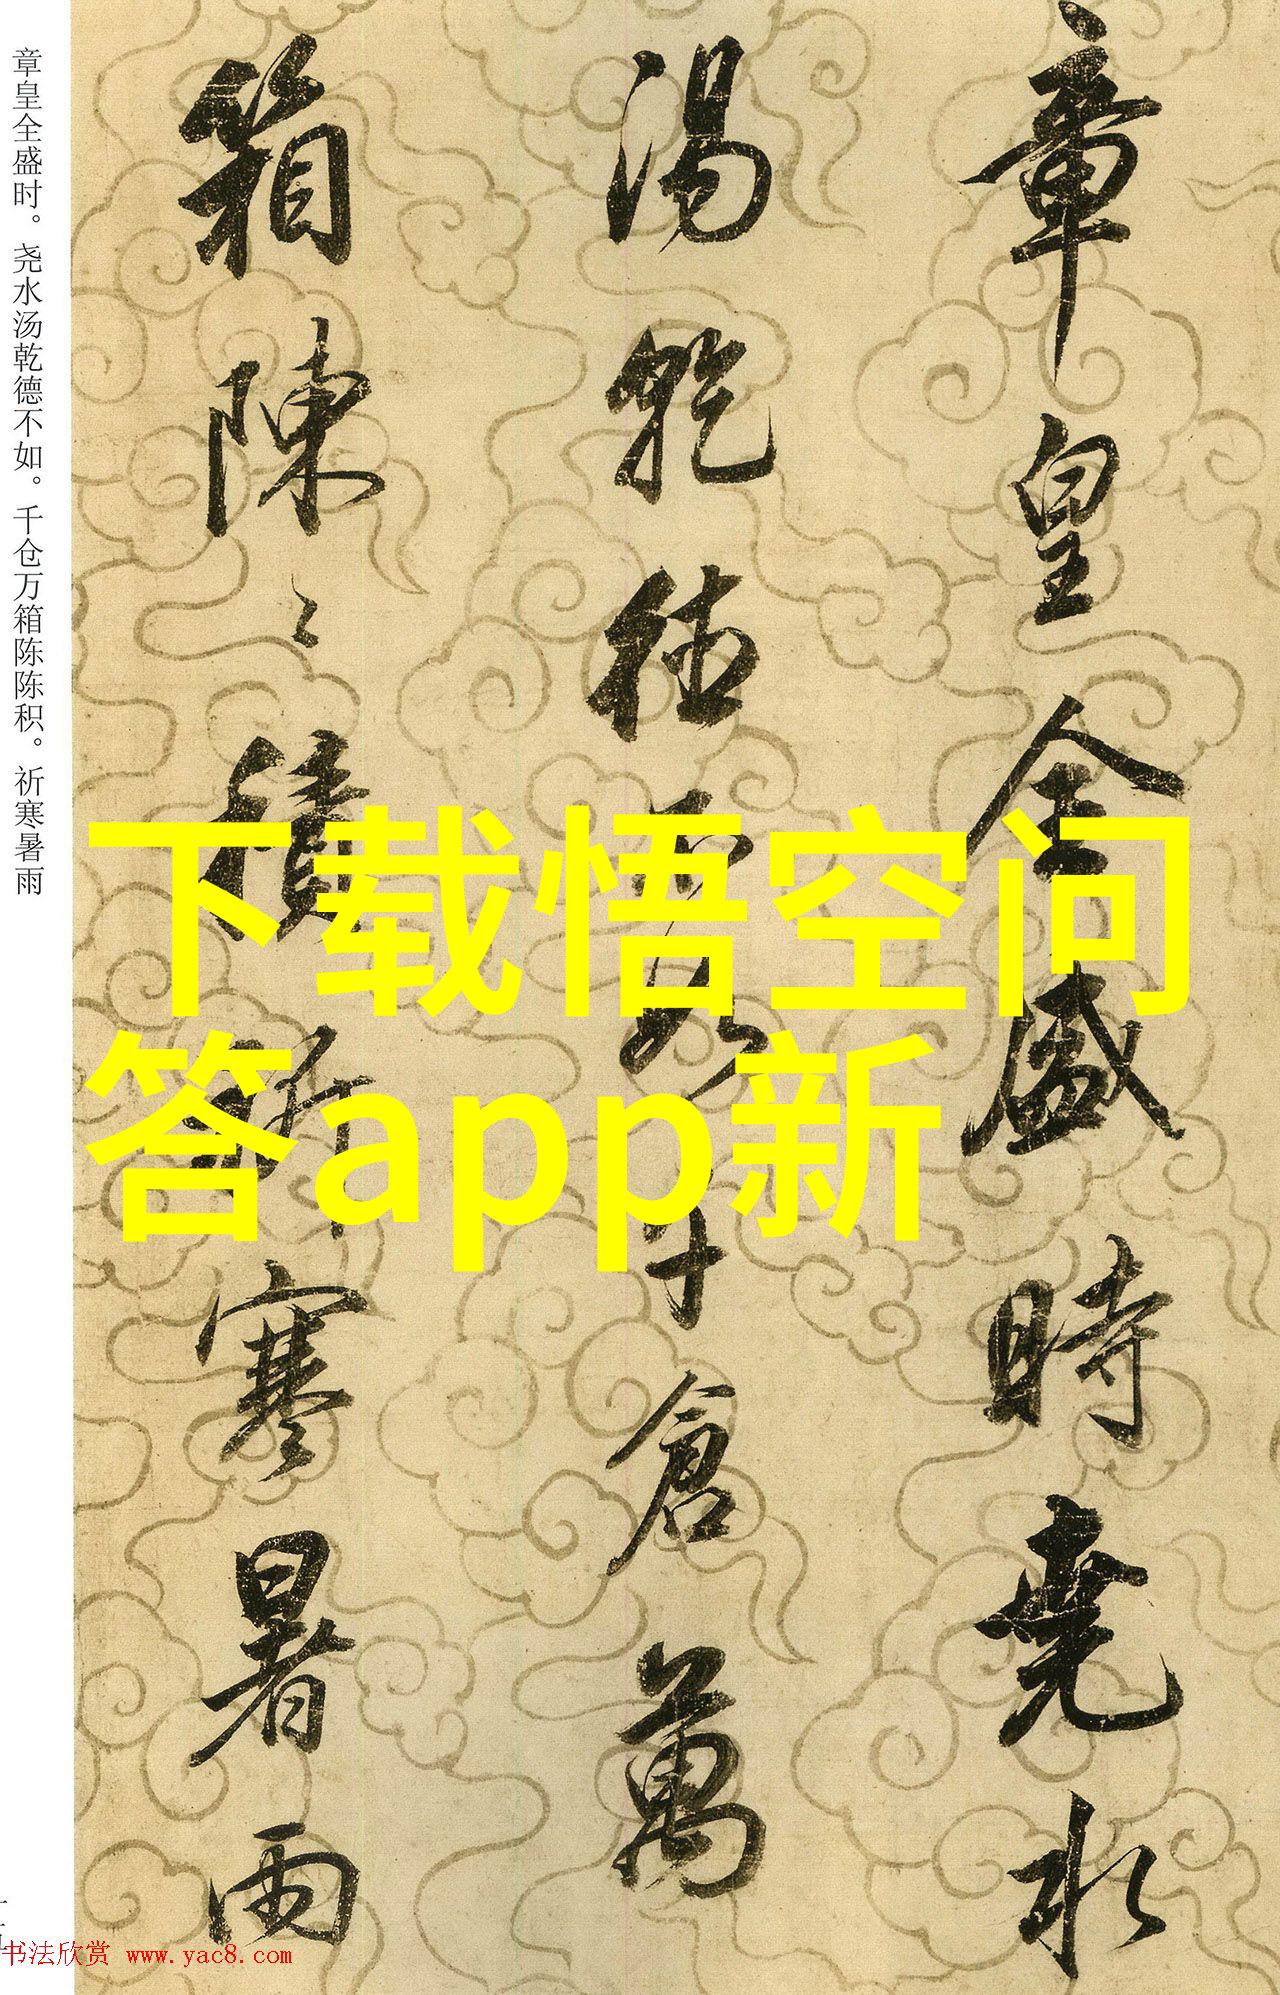 章皇全盛時堯水
湯乾德不如千倉萬
箱陳〻積祈寒暑雨
章皇全盛时。尧水汤乾德不如。千仓万箱陈陈积。祈寒暑雨
下载悟空问
答app新
书法欣赏 www.yac8.com